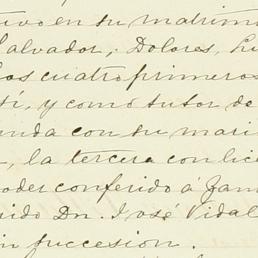 tuvo en su matrimo
Salvador, Dolores, Lu
los cuatro primeros
sí, y como tutor de
unda con su mari
, la tercera con lice
poder conferido á
ido Dn. José Vidal
in sucesion.